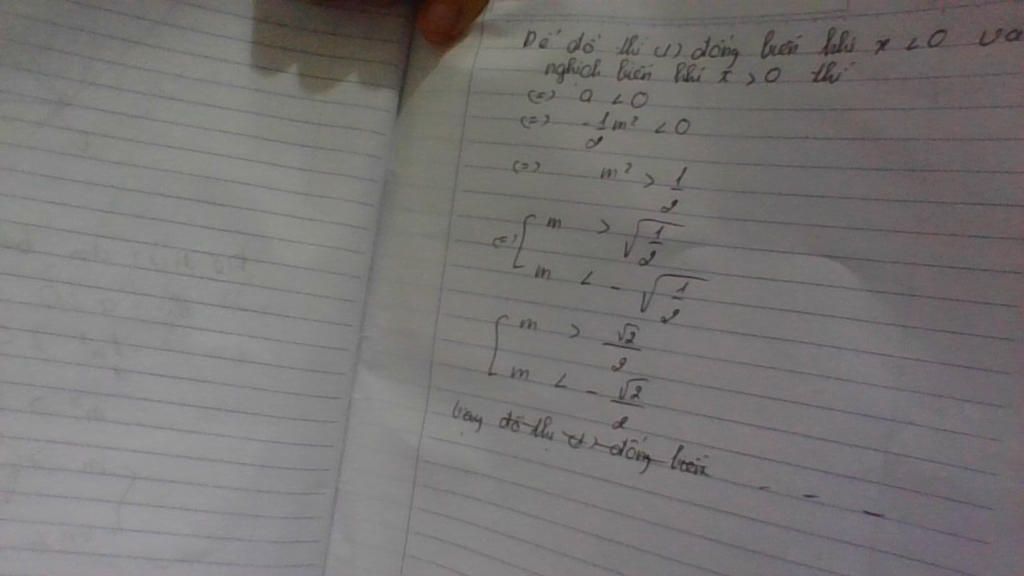 Để đồ thị (1) đồng biến khi x < 0 và
nghịch biến khi x > 0 thì
(=) a < 0
(=) -1/2 m² < 0
(=) m² > 1/2
(=) [ m > √(1/2)
m < - √(1/2)
[ m > √2/2
m < - √2/2
Vậy đồ thị (1) đồng biến - - -